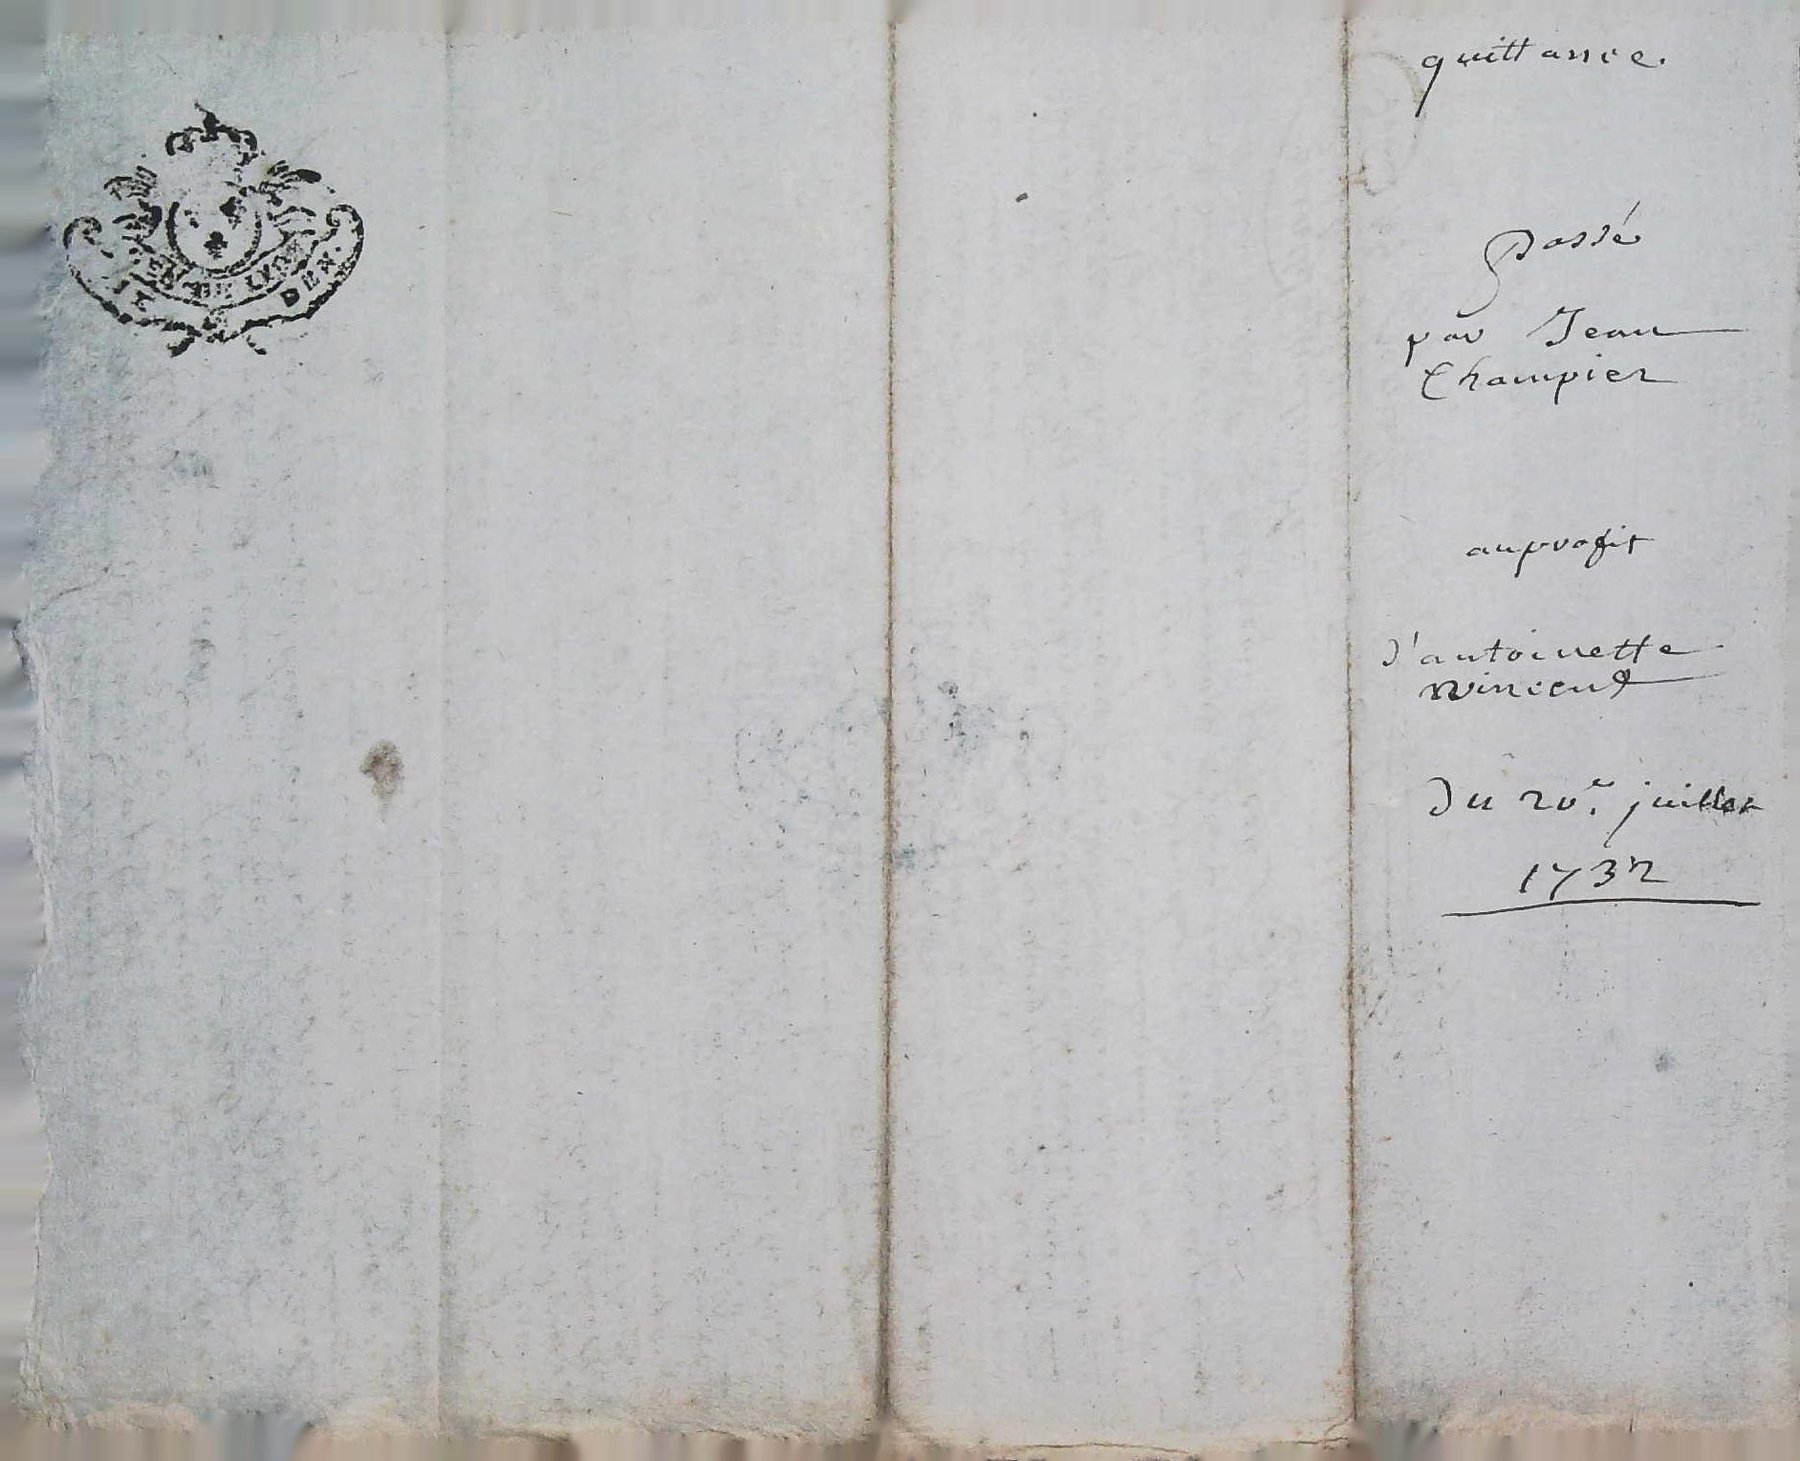 GEN. DE LYON
DEN.
quittance.
Passé
par Jean
Champier
auprofit
d'antoinette
vincent
Du 20.e juillet
1732